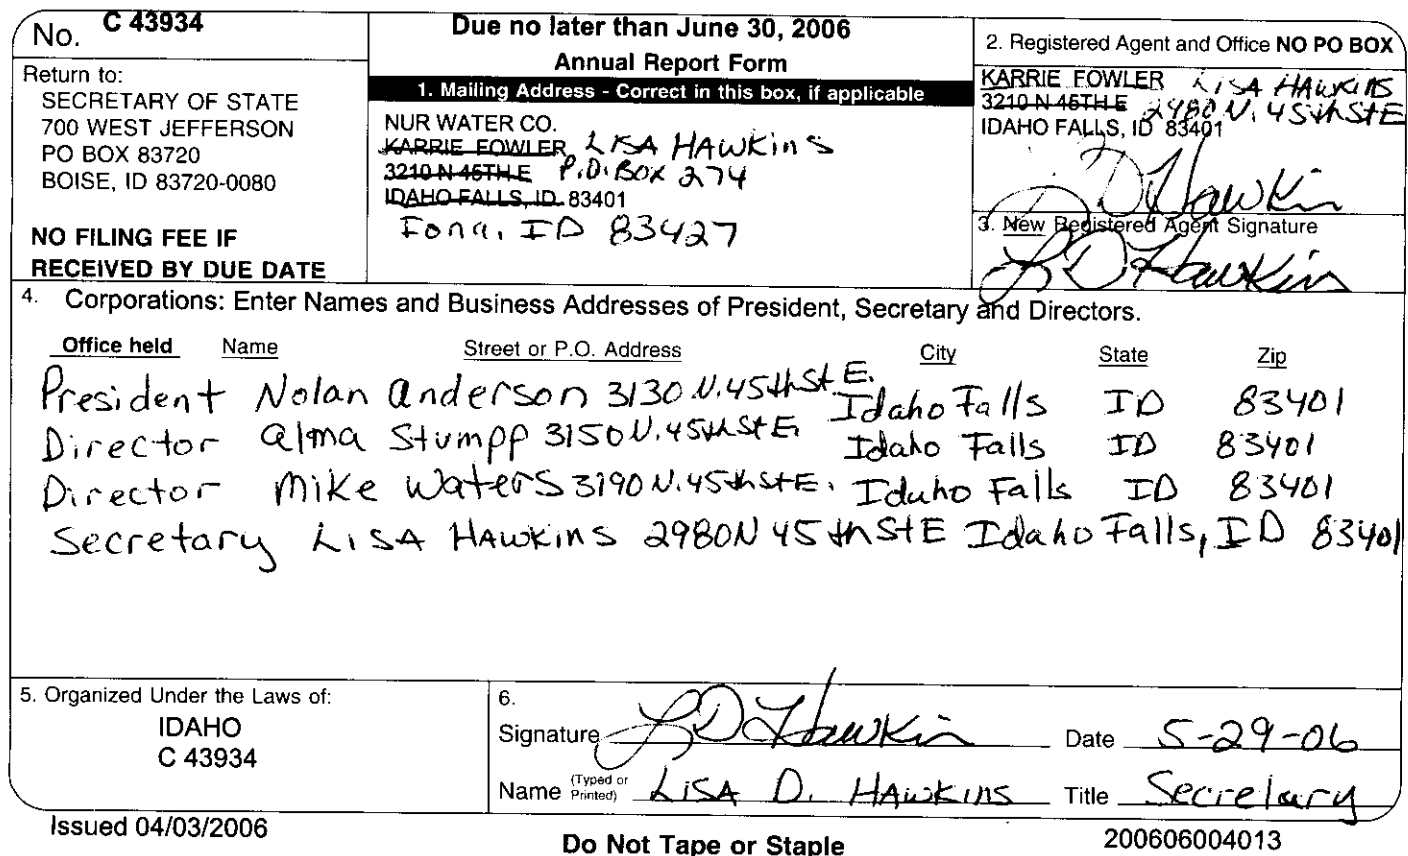 No. C 43934
Due no later than June 30, 2006
Annual Report Form
2. Registered Agent and Office NO PO BOX
Return to:
SECRETARY OF STATE
700 WEST JEFFERSON
PO BOX 83720
BOISE, ID 83720-0080
NO FILING FEE IF
RECEIVED BY DUE DATE
1. Mailing Address - Correct in this box, if applicable
NUR WATER CO.
KARRIE FOWLER LISA HAWKinS
3210 N 45TH E P.O. BOX 274
IDAHO FALLS, ID 83401
Iona, ID 83427
KARRIE FOWLER LISA HAWKINS
3210 N 45TH E 2980 N. 45th St E
IDAHO FALLS, ID 83401
D Hawkin
3. New Registered Agent Signature
L D Hawkins
4. Corporations: Enter Names and Business Addresses of President, Secretary and Directors.
Office held Name Street or P.O. Address City State Zip
President Nolan Anderson 3130 N. 45th St E. Idaho Falls ID 83401
Director Alma Stumpp 3150 N. 45th St E. Idaho Falls ID 83401
Director Mike Waters 3190 N. 45th St E. Idaho Falls ID 83401
Secretary LISA HAWKINS 2980 N 45th St E Idaho Falls, ID 83401
5. Organized Under the Laws of:
IDAHO
C 43934
6.
Signature L D Hawkin Date 5-29-06
Name (Typed or Printed) LISA D. HAWKINS Title Secretary
Issued 04/03/2006
Do Not Tape or Staple
200606004013